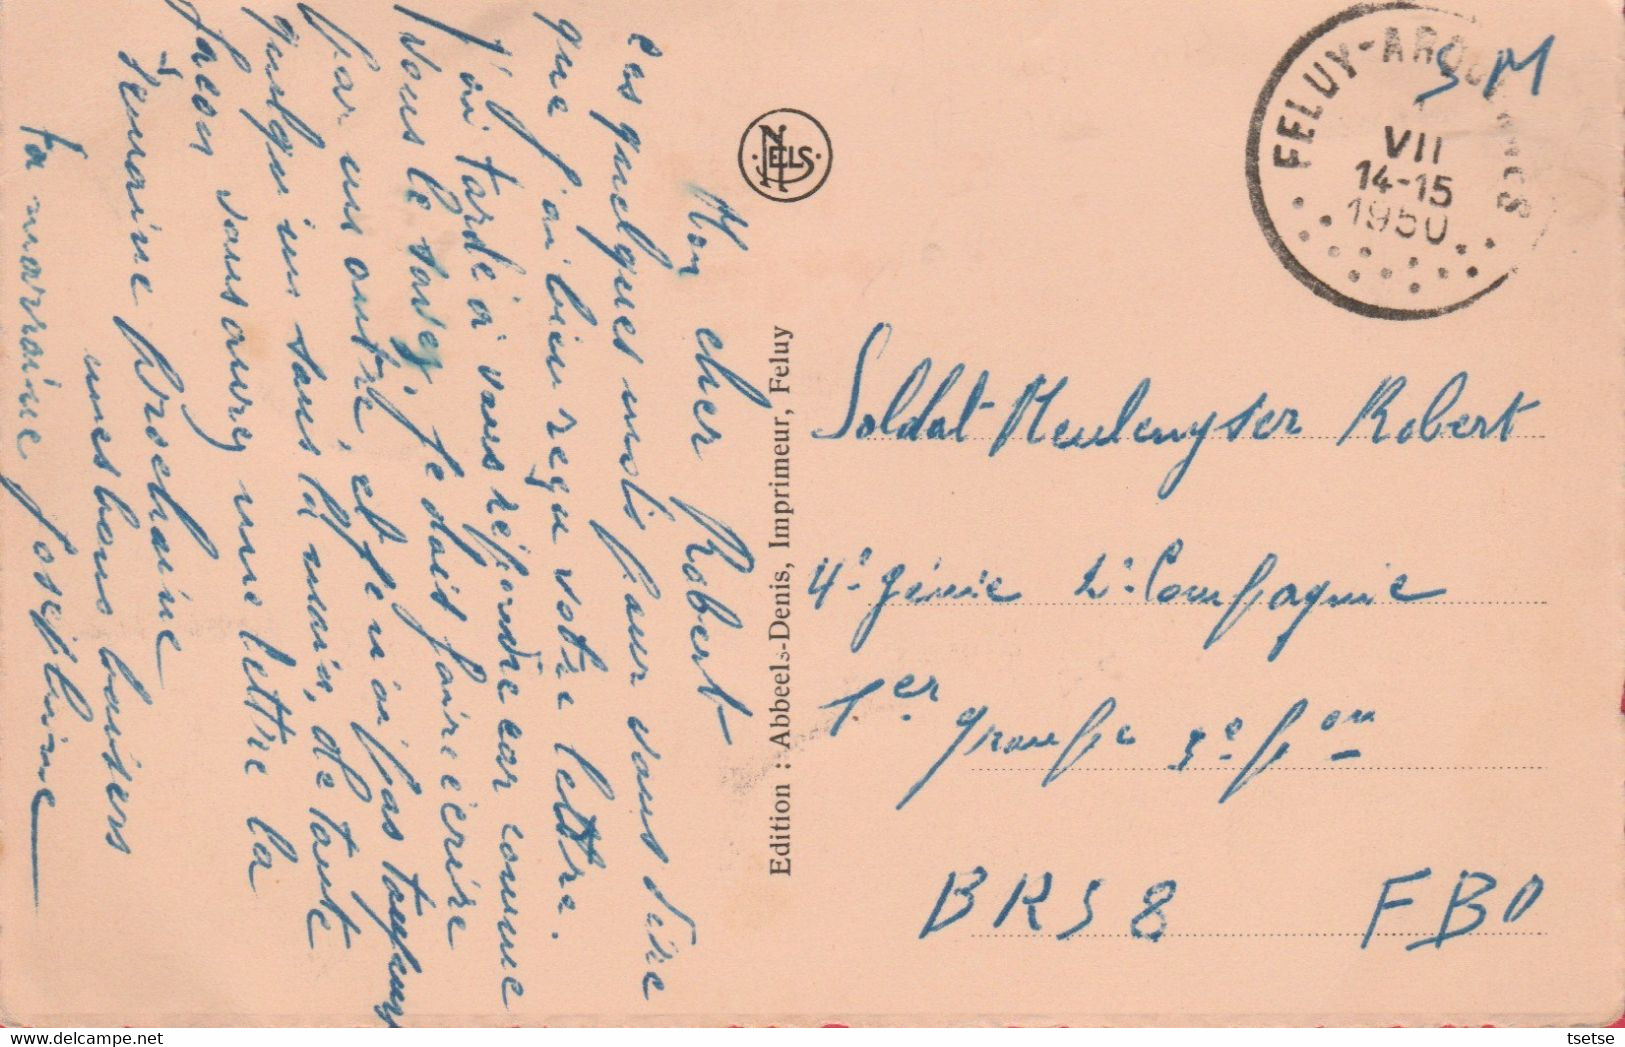 Mon cher Robert
Ces quelques mots pour vous dire
que j'ai bien reçu votre lettre.
J'ai tardé à vous répondre car comme
vous le savez, je dois faire écrire
par un autre, et je n'ai pas toujours
quelqu'un sous la main, de toute
façon vous aurez une lettre la
semaine prochaine
mes bons baisers
ta marraine Joséphine
NELS
Edition : Abbeels-Denis, Imprimeur, Feluy
FELUY-ARQUENNES
VII
14-15
1950
S M
Soldat Meulenyser Robert
4e Génie 2e Compagnie
1er groupe 3e pon
BRS 8 FBO
delcampe.net
tsetse